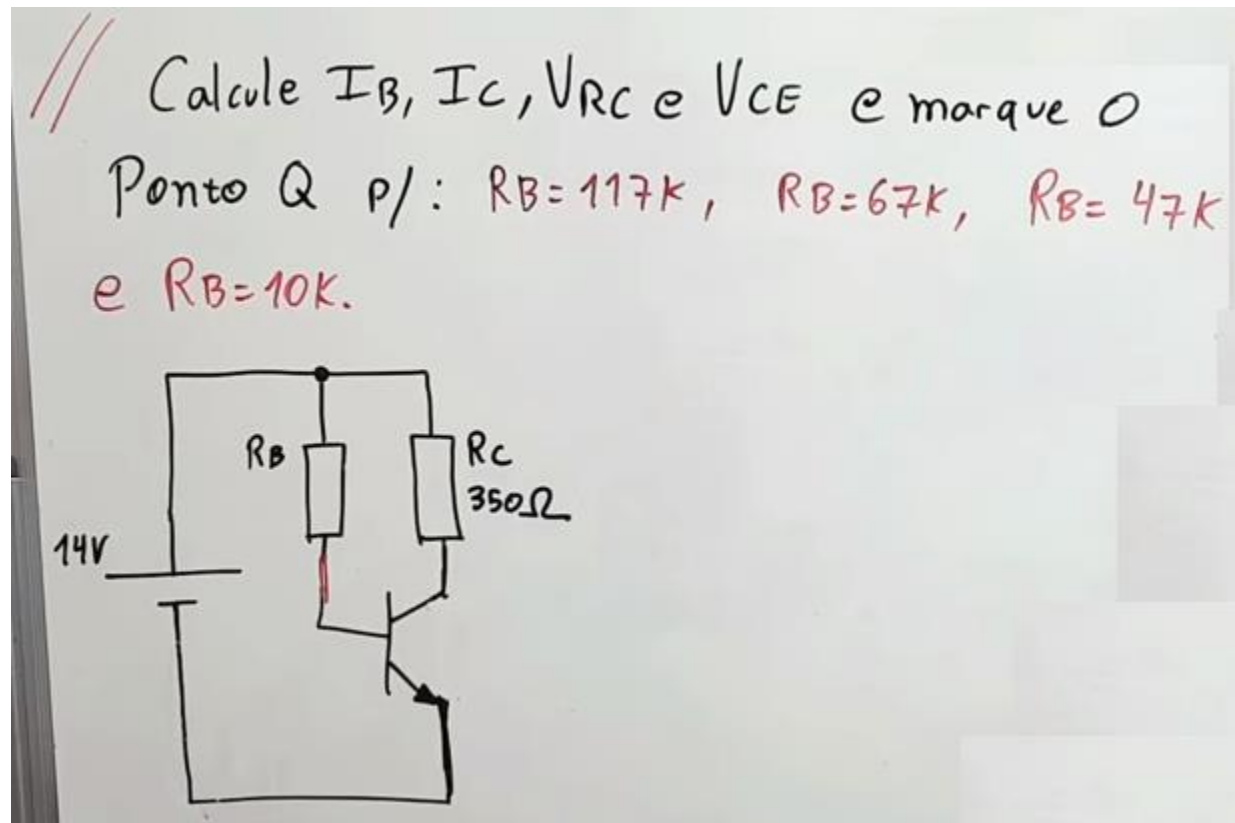 Calcule IB, IC, VRC e VCE e marque o
Ponto Q p/: RB=117K, RB=67K, RB=47K
e RB=10K.
RB
RC
350Ω
14V